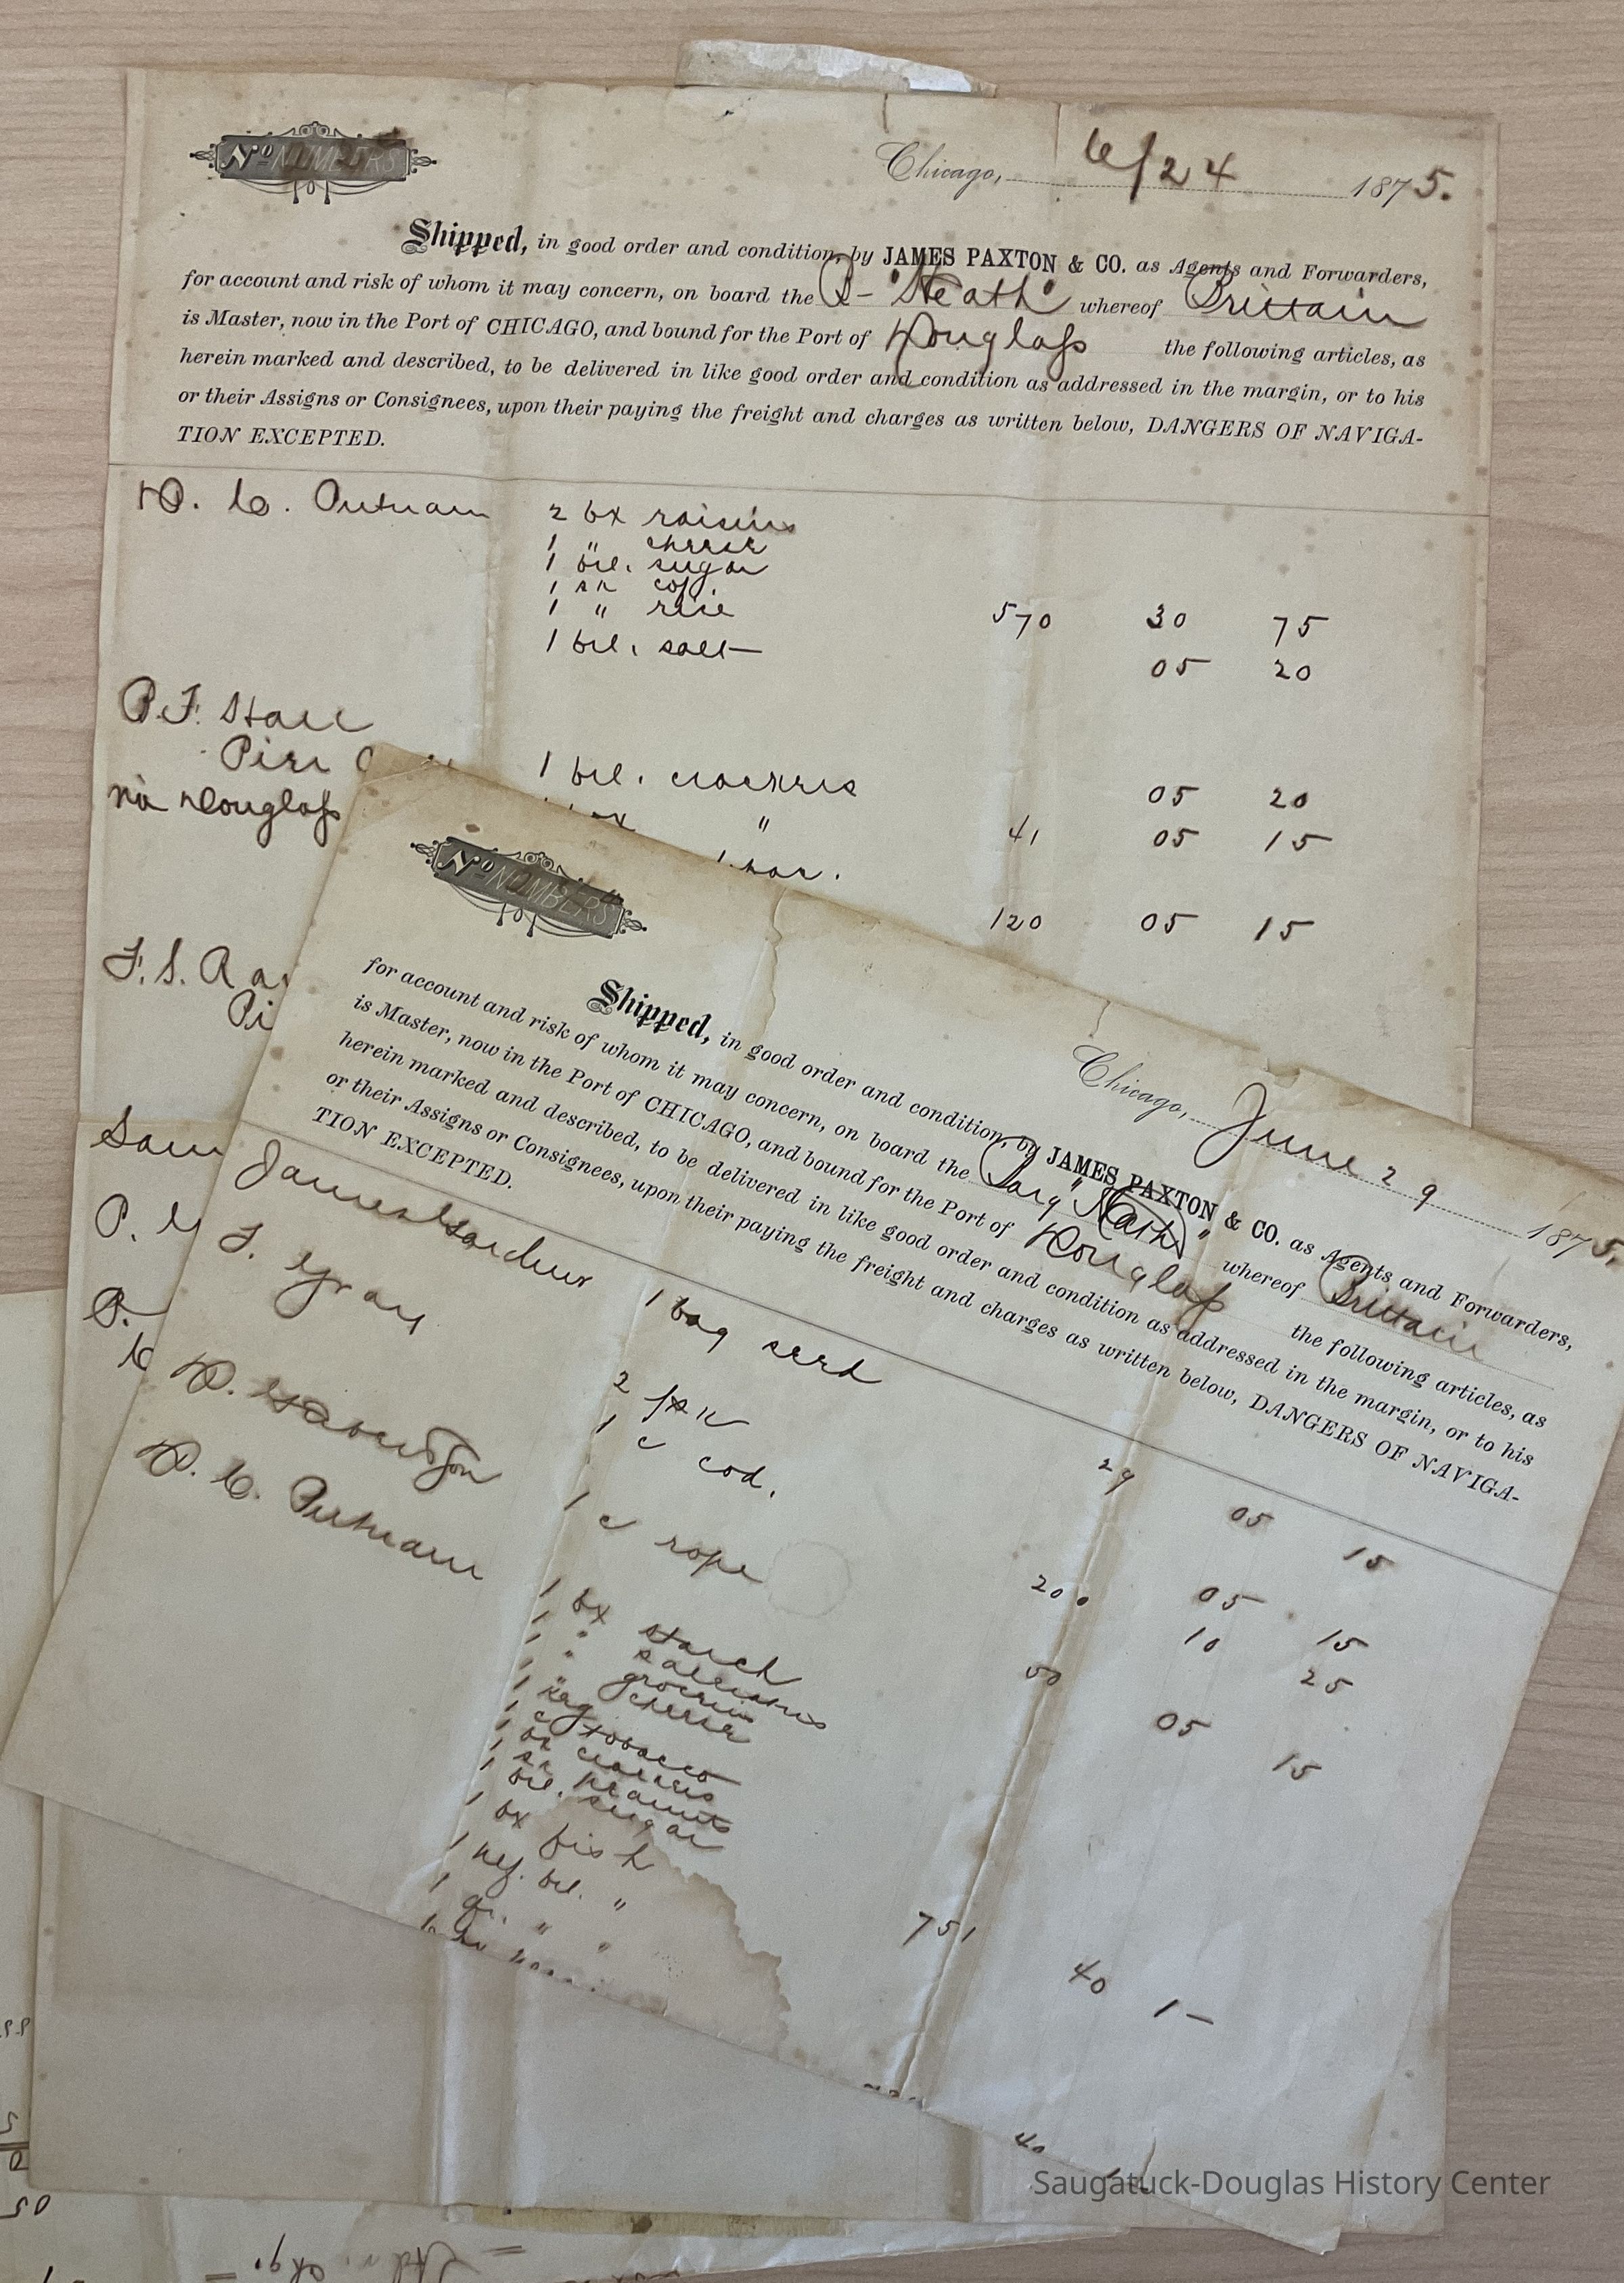 No NUMBERS
Chicago, 6/24 1875.
Shipped, in good order and condition, by JAMES PAXTON & CO. as Agents and Forwarders,
for account and risk of whom it may concern, on board the "Heath" whereof Brittain
is Master, now in the Port of CHICAGO, and bound for the Port of Douglass the following articles, as
herein marked and described, to be delivered in like good order and condition as addressed in the margin, or to his
or their Assigns or Consignees, upon their paying the freight and charges as written below, DANGERS OF NAVIGA-
TION EXCEPTED.
D. C. Putnam 2 bx raisins
1 " cheese
1 bbl. sugar
1 sk cof.
1 " rice 570 30 75
1 bbl. salt 05 20
P.F.
Pier
via Douglass
1 bbl. crackers 05 20
" 41 05 15
120 05 15
F. S.
Pi
Sam
P.
No NUMBERS
Chicago, June 29 1875.
Shipped, in good order and condition, by JAMES PAXTON & CO. as Agents and Forwarders,
for account and risk of whom it may concern, on board the Barq "Heath" whereof Brittain
is Master, now in the Port of CHICAGO, and bound for the Port of Douglass the following articles, as
herein marked and described, to be delivered in like good order and condition as addressed in the margin, or to his
or their Assigns or Consignees, upon their paying the freight and charges as written below, DANGERS OF NAVIGA-
TION EXCEPTED.
James Gardner 1 bag seed 29 05 15
F. Gray 2 05 15
1 c cod. 200 10 25
D. 1 c rope 50 05 15
D. C. Putnam 1 bx starch
1 " saleratus
1 " groceries
1 " cheese
1 keg tobacco
1 c crackers
1 sk peanuts
1 bbl. sugar
1 bx fish
1 hf. bbl. "
1 qr. " " 751 40 1 -
40
Saugatuck-Douglas History Center